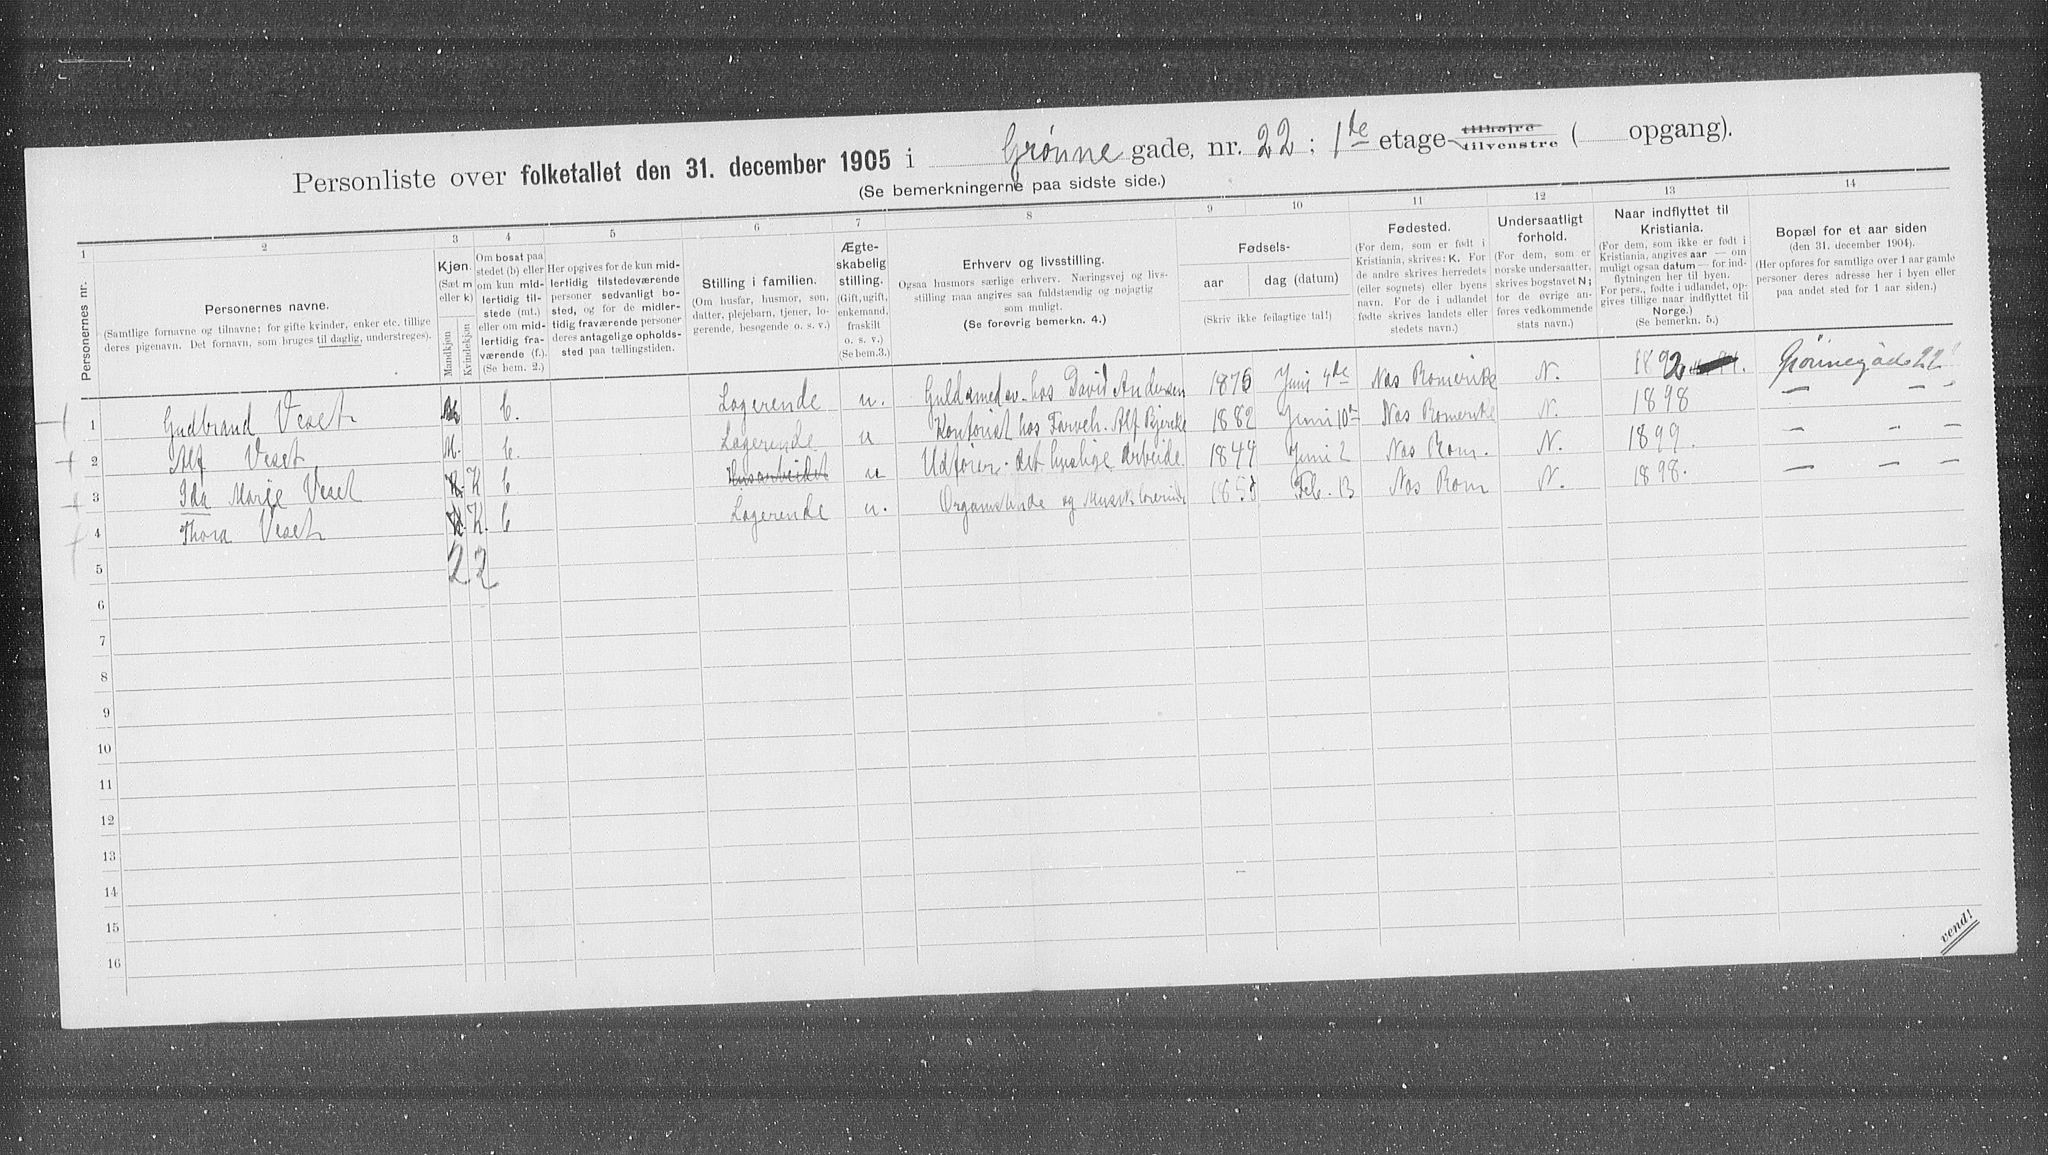 Personliste over folketallet den 31. december 1905 i Grønne gade, nr. 22 ; 1de etage tilhøjre tilvenstre ( opgang).
(Se bemerkningerne paa sidste side.)
1 2 3 4 5 6 7 8 9 10 11 12 13 14
Personernes nr.
Personernes navne.
(Samtlige fornavne og tilnavne; for gifte kvinder, enker etc. tillige
deres pigenavn. Det fornavn, som bruges til daglig, understreges).
Kjøn.
(Sæt m
eller k)
Mandkjøn
Kvindekjøn
Om bosat paa
stedet (b) eller
om kun mid-
lertidig til-
stede (mt.)
eller om mid-
lertidig fra-
værende (f.)
(Se bem. 2.)
Her opgives for de kun mid-
lertidig tilstedeværende
personer sedvanlig bo-
sted, og for de midler-
tidig fraværende personer
deres antagelige opholds-
sted paa tællingstiden.
Stilling i familien.
(Om husfar, husmor, søn,
datter, plejebarn, tjener, lo-
gerende, besøgende o. s. v.)
Ægte-
skabelig
stilling.
(Gift, ugift,
enkemand,
fraskilt
o. s. v.)
(Se bem.3.)
Erhverv og livsstilling.
Ogsaa husmors særlige erhverv. Næringsvej og livs-
stilling maa angives saa fuldstændig og nøjagtig
som muligt.
(Se forøvrig bemerkn. 4.)
Fødsels-
aar dag (datum)
(Skriv ikke feilagtige tal!)
Fødested.
(For dem, som er født i
Kristiania, skrives: K. For
de andre skrives herredets
(eller sognets) eller byens
navn. For de i udlandet
fødte skrives landets eller
stedets navn.)
Undersaatligt
forhold.
(For dem, som er
norske undersaatter,
skrives bogstavet N;
for de øvrige an-
føres vedkommende
stats navn.)
Naar indflyttet til
Kristiania.
(For dem, som ikke er født i
Kristiania, angives aar — om
muligt ogsaa datum — for ind-
flytningen her til byen.
For pers., fødte i udlandet, op-
gives tillige naar indflyttet til
Norge.)
(Se bemerkn. 5.)
Bopæl for et aar siden
(den 31. december 1904).
(Her opføres for samtlige over 1 aar gamle
personer deres adresse her i byen eller
paa andet sted for 1 aar siden.)
1 Gudbrand Veset M b. Logerende u. Guldsmedsv. hos David Andersen 1875 Juni 4de Nes Romerike N. 1892 Grønnegade 22
2 Alf Veset M. b. Logerende u Kontorist hos Farveh. Alf Bjercke 1882 Juni 10de Nes Romerike N. 1898 — — —
3 Ida Marie Veset K b Husarbeidet u Udfører det huslige arbeide 1849 Juni 2 Nes Rom. N. 1899. — — —
4 Thora Veset K. b Logerende u. Organistinde og Musiklærerinde Feb. 13 Nes Rom N. 1898. — — —
2 2
5
6
7
8
9
10
11
12
13
14
15
16
vend!